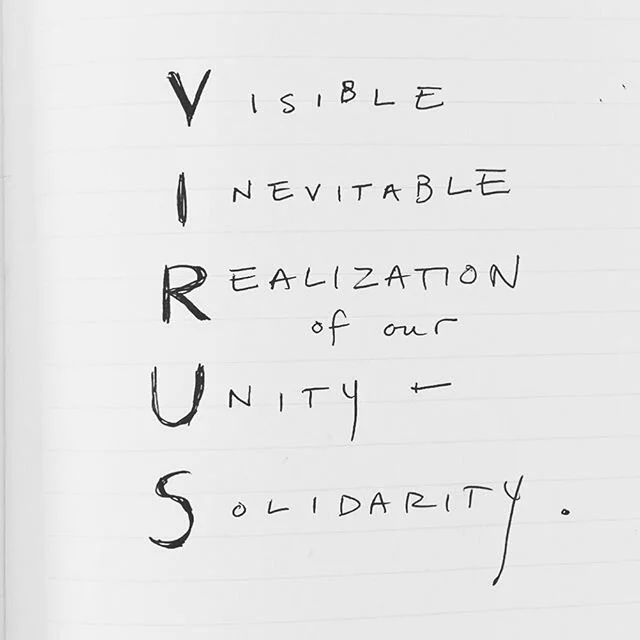 VISIBLE
INEVITABLE
REALIZATION
of our
UNITY +
SOLIDARITY.